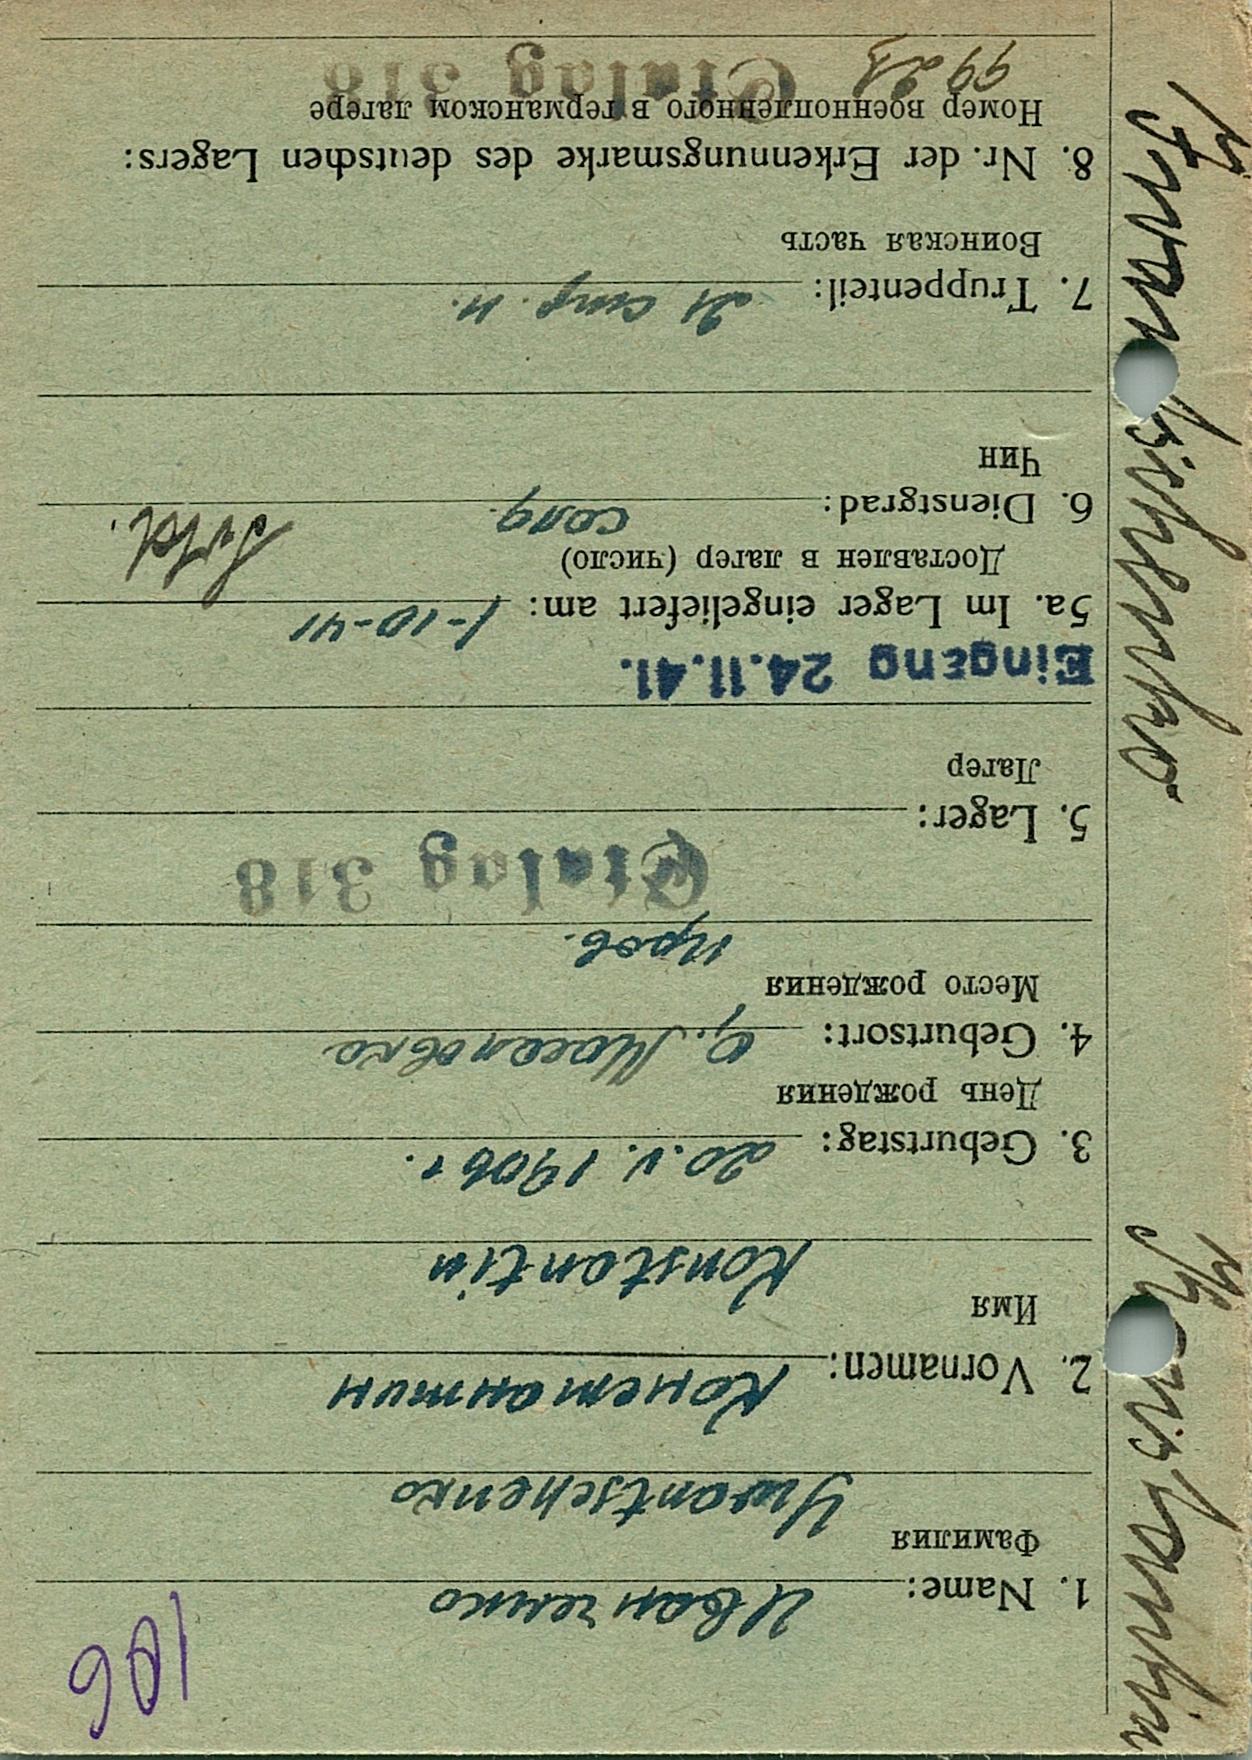 106
1. Name: Иванченко
Фамилия
Iwantschenko
2. Vornamen: Константин
Имя
Konstantin
3. Geburtstag: 20.V.1906 г.
День рождения
4. Geburtsort: с. Масловка
Место рождения
пров.
Stalag 318
5. Lager:
Лагер
Eingang 24.11.41.
5a. Im Lager eingeliefert am: 1-10-41
Доставлен в лагер (число)
6. Dienstgrad: солд.
Чин
7. Truppenteil: 21 стр. п.
Воинская часть
8. Nr. der Erkennungsmarke des deutschen Lagers:
Номер военнопленного в германском лагере
Stalag 318
Iwantschenko
Konstantin